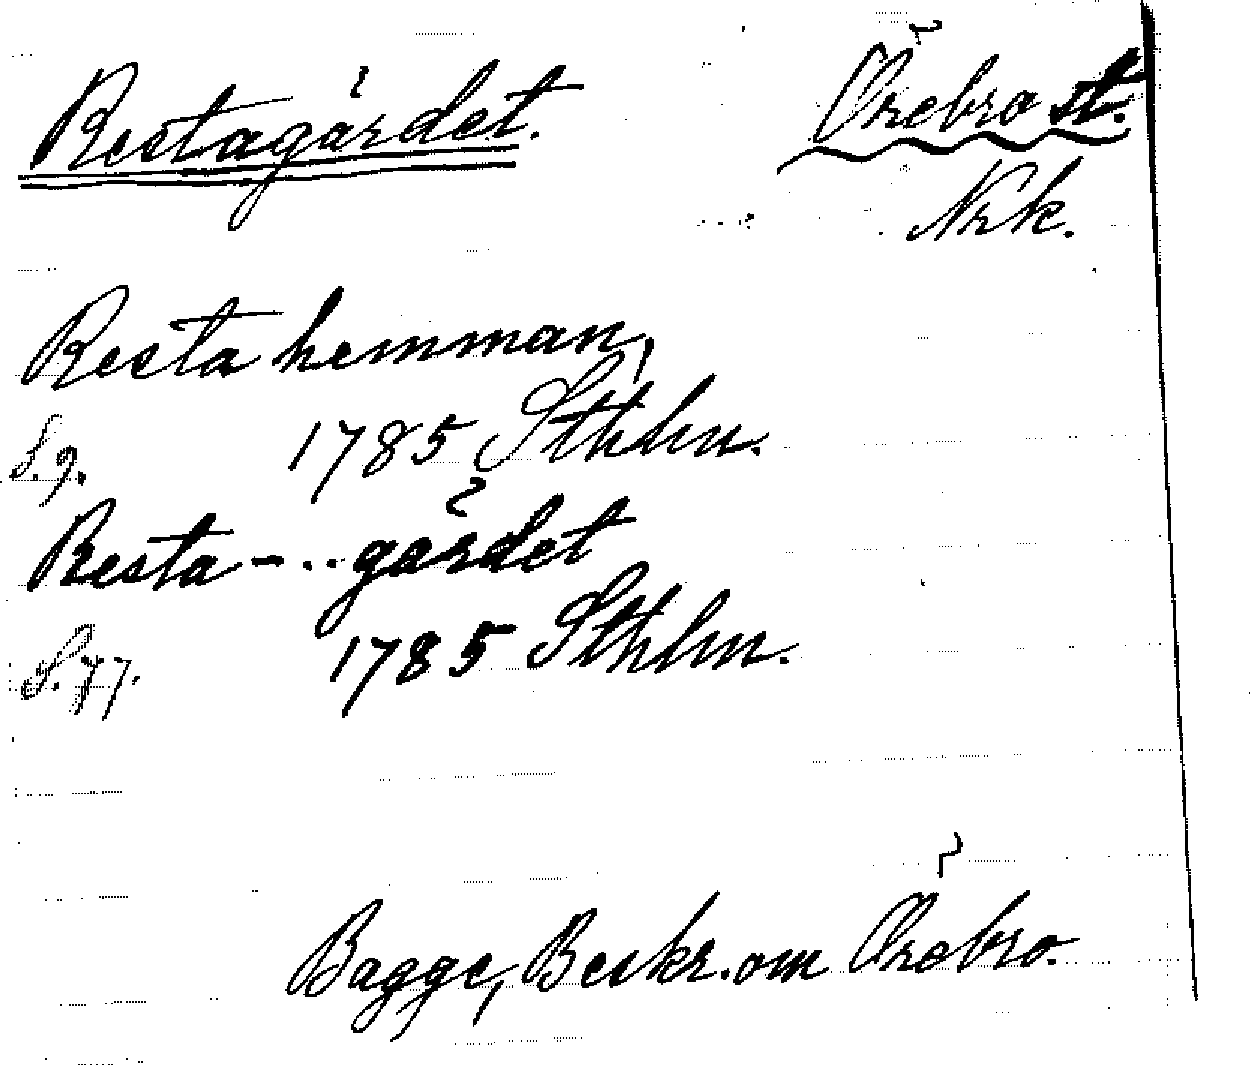 Restagärdet.
Örebro st.
Nrk.
Resta hemman,
S. 9. 1785 Sthlm.
Resta - .. gärdet
S. 77. 1785 Sthlm.
Bagge, Beskr. om Örebro.